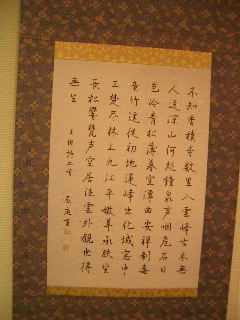 不知香積寺数里入雲峰古木無
人逕深山何処鐘泉声咽危石日
色冷青松薄暮空潭曲安禅制毒
竜竹逕従初地蓮峰出化城窓中
三楚尽林上九江平嫩草承趺坐
長松響梵声空居法雲外観世得
無生
王維詩二首